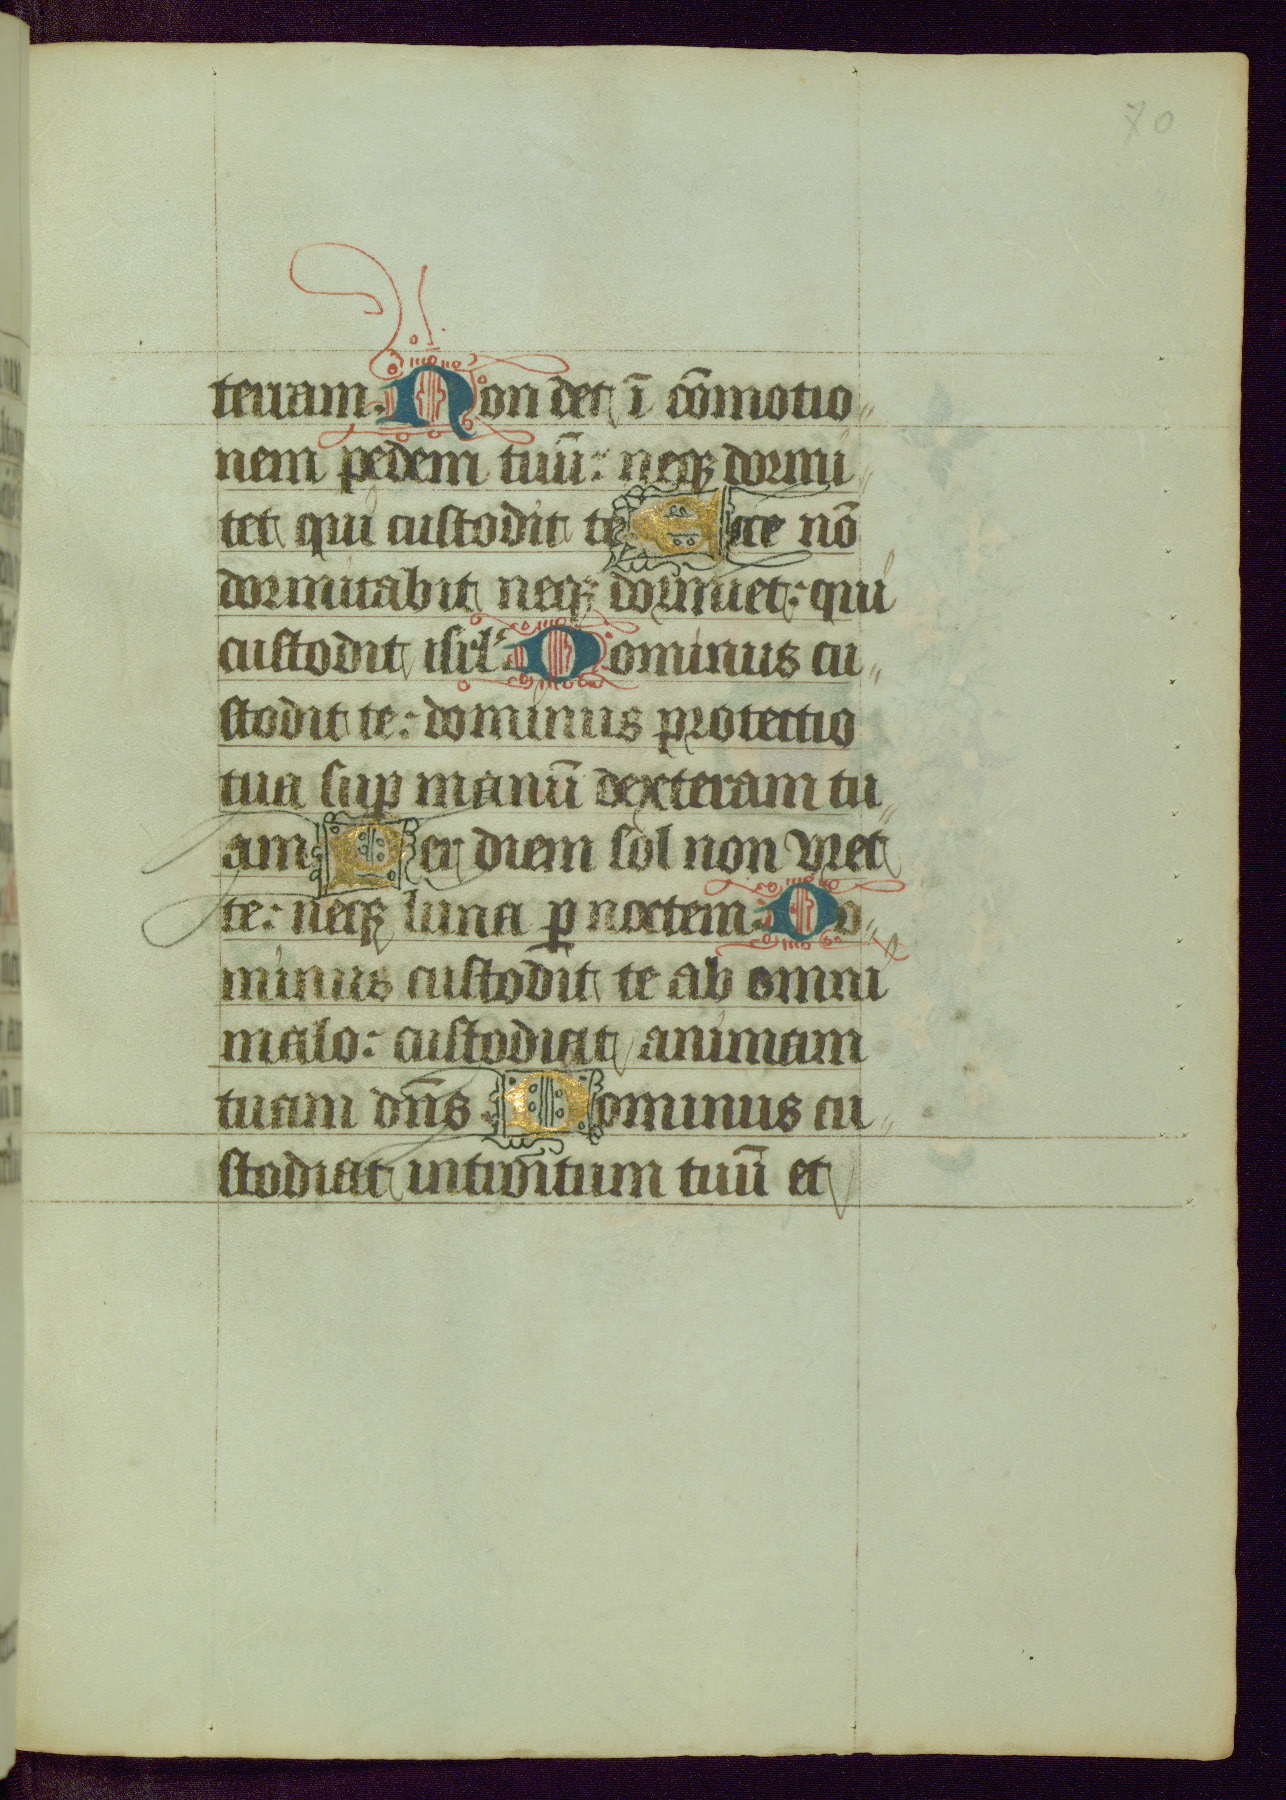 70
terram. Non det ī cōmotio〃
nem pedem tuū: neqꝫ dormi〃
tet qui custodit te Ecce nō
dormitabit neqꝫ dormiet: qui
custodit isrl'. Dominus cu〃
stodit te: dominus protectio
tua suꝑ manū dexteram tu〃
am Per diem sol non vret
te: neqꝫ luna ꝑ noctem. Do〃
minus custodit te ab omni
malo: custodiat animam
tuam dn̄s. Dominus cu〃
stodiat introitum tuū et